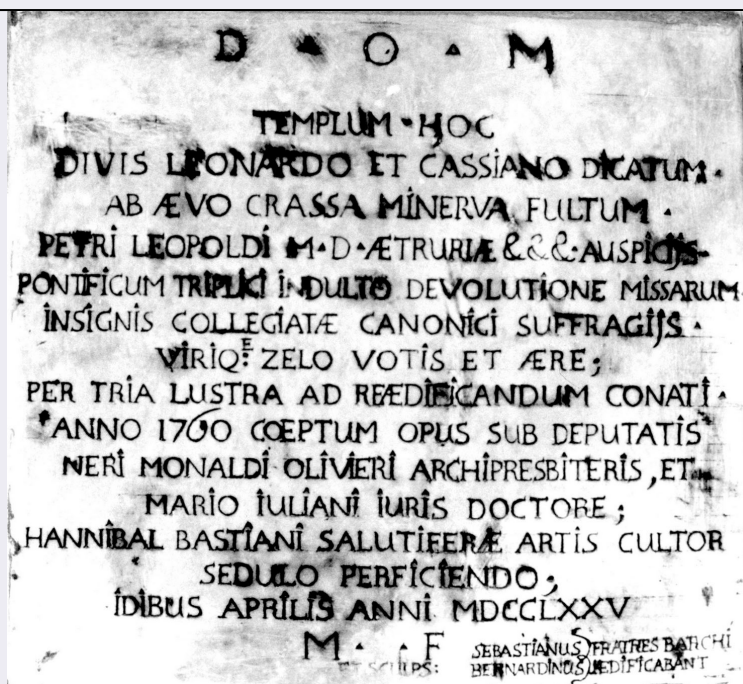 D · O · M
TEMPLUM · HOC
DIVIS LEONARDO ET CASSIANO DICATUM ·
AB ÆVO CRASSA MINERVA FULTUM ·
PETRI LEOPOLDI M · D · ÆTRURIÆ &&& · AUSPICIJS
PONTIFICUM TRIPLICI INDULTO DEVOLUTIONE MISSARUM
INSIGNIS COLLEGIATÆ CANONICI SUFFRAGIJS ·
VIRIQ:E ZELO VOTIS ET ÆRE;
PER TRIA LUSTRA AD REÆDIFICANDUM CONATI ·
ANNO 1760 CŒPTUM OPUS SUB DEPUTATIS
NERI MONALDI OLIVIERI ARCHIPRESBITERIS, ET
MARIO IULIANI IURIS DOCTORE;
HANNIBAL BASTIANI SALUTIFERÆ ARTIS CULTOR
SEDULO PERFICIENDO;
IDIBUS APRILIS ANNI MDCCLXXV
M · · F
ET SCULPS:
SEBASTIANUS FRATRES BATICHI
BERNARDINUS ÆDIFICABANT